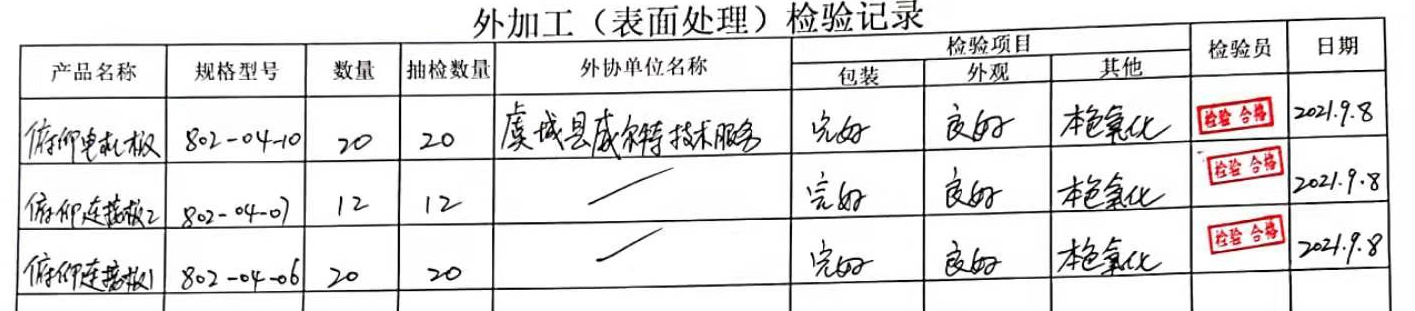 外加工（表面处理）检验记录
产品名称 规格型号 数量 抽检数量 外协单位名称 检验项目 检验员 日期
包装 外观 其他
俯仰电机板 802-04-10 20 20 虞城县威尔特技术服务 完好 良好 本色氧化 检验 合格 2021.9.8
俯仰连接板2 802-04-07 12 12 / 完好 良好 本色氧化 检验 合格 2021.9.8
俯仰连接板1 802-04-06 20 20 / 完好 良好 本色氧化 检验 合格 2021.9.8